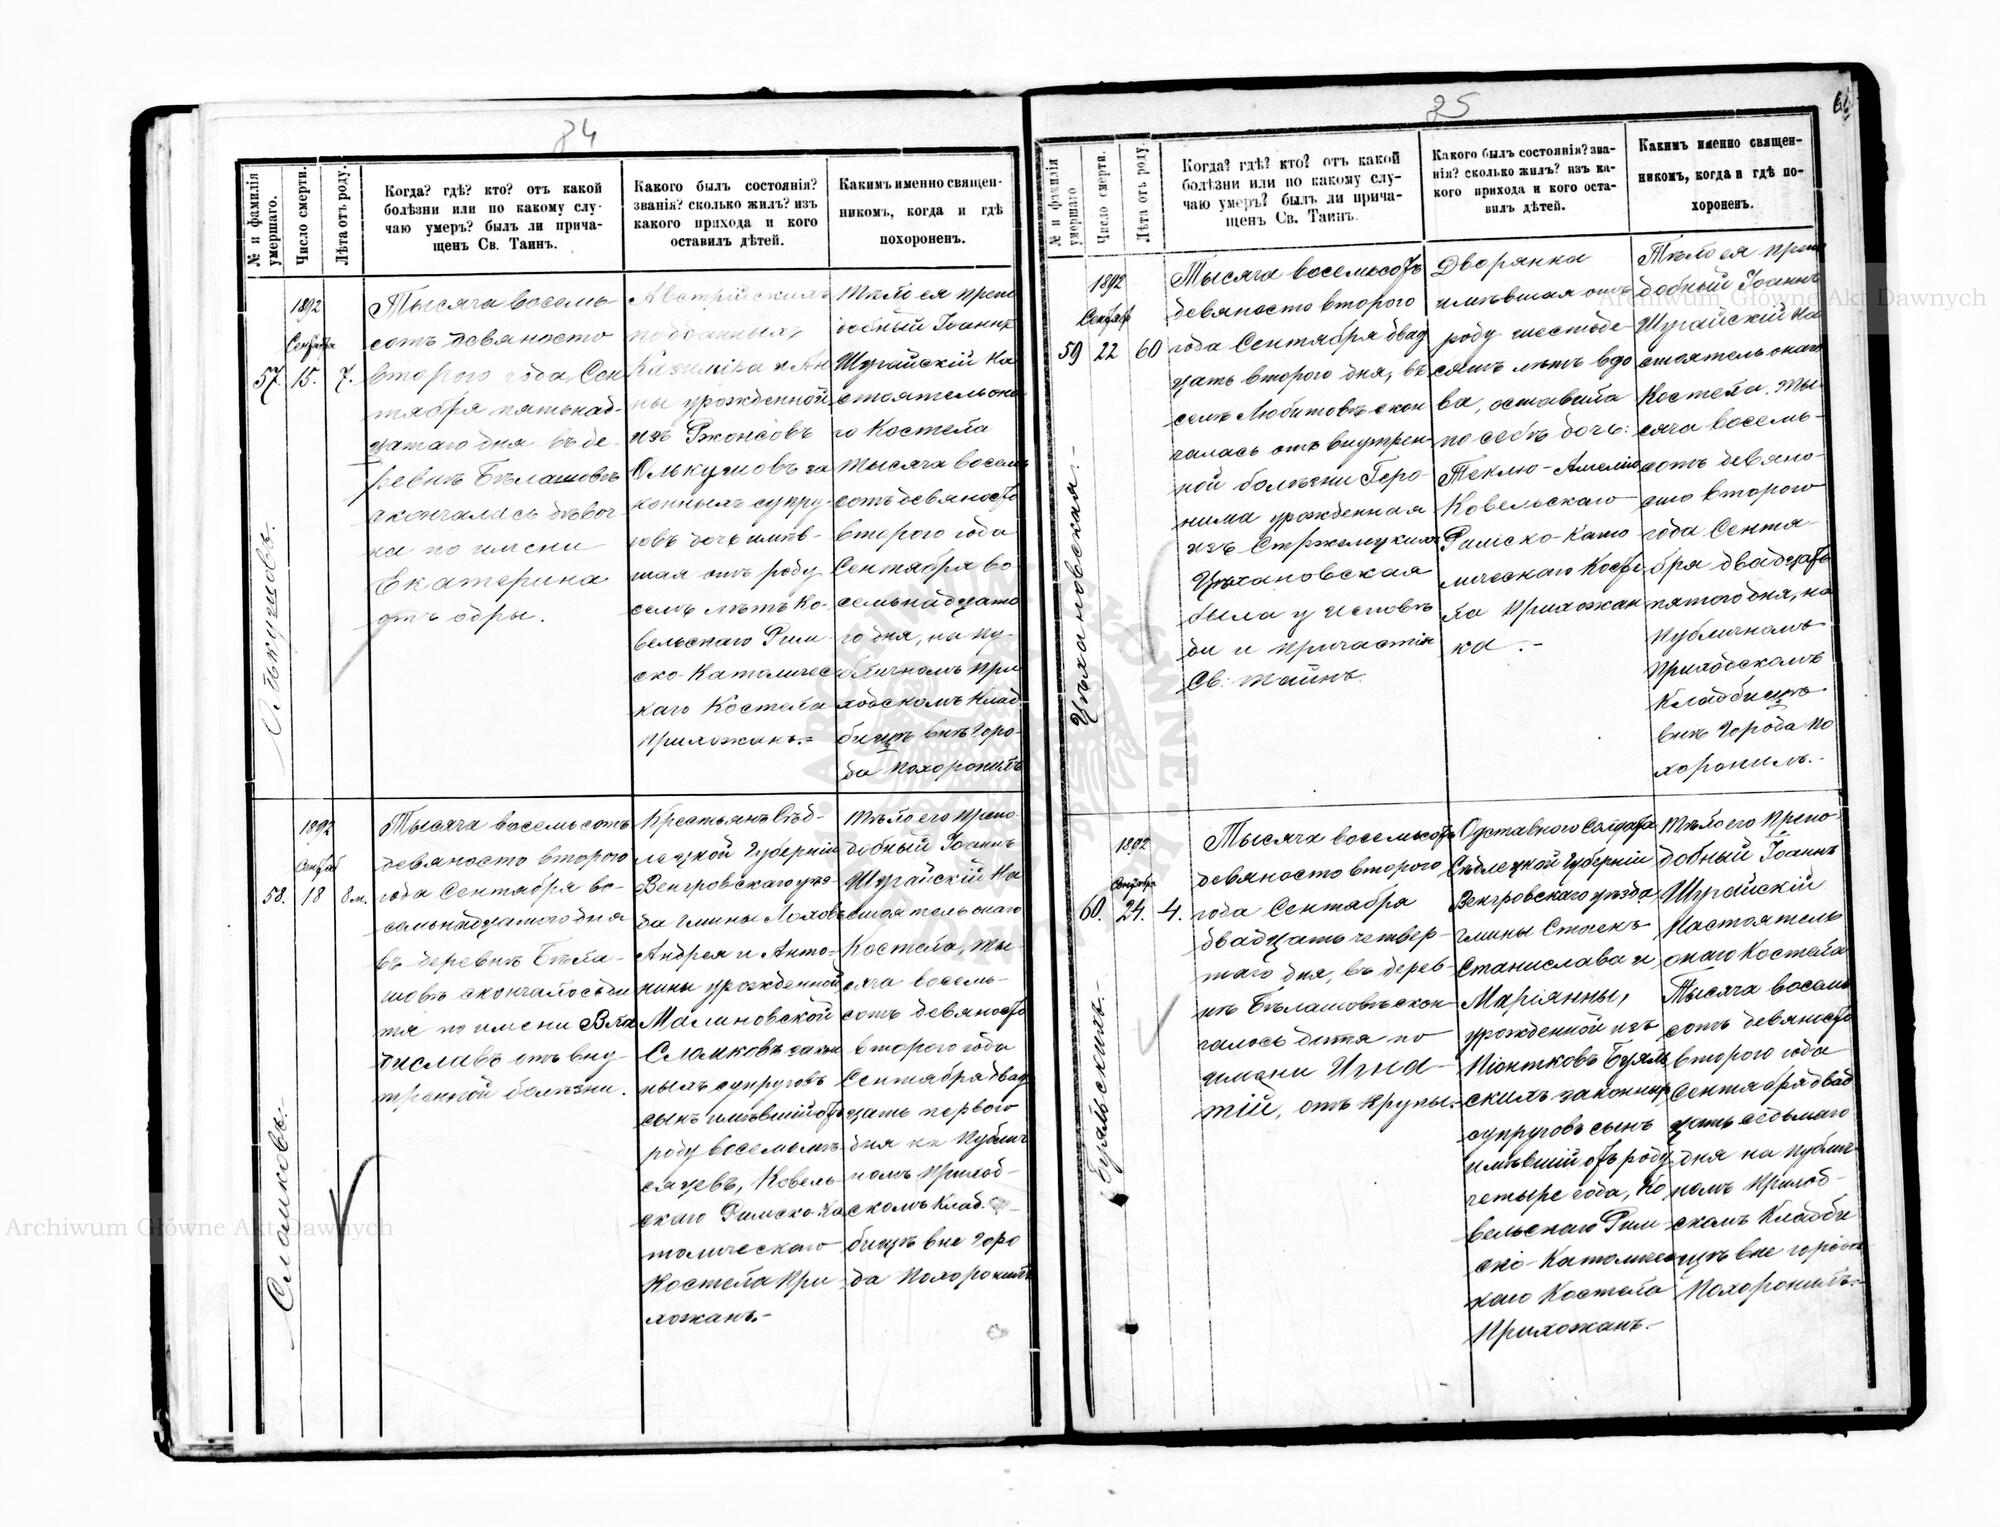 84
№ и фамилія умершаго.
Число смерти.
Лѣта отъ роду.
Когда? гдѣ? кто? отъ какой
болѣзни или по какому слу-
чаю умеръ? былъ ли прича-
щенъ Св. Таинъ.
Какого былъ состоянія?
званія? сколько жилъ? изъ
какого прихода и кого
оставилъ дѣтей.
Какимъ именно священ-
никомъ, когда и гдѣ
похороненъ.
Олькушовъ.
57.
1892
Сентября
15.
7.
Тысяча восемь-
сотъ девяносто
второго года Сен
тября пятьнад-
цатаго дня въ де-
ревнѣ Бѣлашовѣ
скончалась дѣвоч
ка по имени
Екатерина
отъ одры.
Австрійскихъ
подданныхъ,
Казиміра и Ан
ны урожденной
изъ Ржонсовъ
Олькушовъ за
конныхъ супру
говъ дочь имѣв-
шая отъ роду
семь лѣтъ Ко-
вельскаго Рим-
ско-Католичес
каго Костела
Прихожанъ.=
Тѣло ея препо
добный Іоаннъ
Шугайскій На
стоятель она
го Костела
тысяча восемь
сотъ девяносто
второго года
Сентября во-
семьнадцато
го дня, на пу-
бличномъ При
ходскомъ Клад
бищѣ внѣ Горо-
да похоронилъ
Сломковъ.-
58.
1892
Сентяб
18
8 м.
Тысяча восемьсотъ
девяносто второго
года Сентября во-
семьнадцатого дня
въ деревнѣ Бѣла-
шовѣ скончалось ди
тя по имени Вла
диславъ отъ вну-
тренной болѣзни.
Крестьянъ Сѣд-
лецкой Губерніи
Венгровскаго уѣз-
да гмины Лоховъ
Андрея и Анто-
нины урожденной
Малиновской
Сломковъ закон
ныхъ супруговъ
сынъ имѣвшій отъ
роду восемь мѣ-
сяцевъ, Ковель-
скаго Римско-Ка
толическаго
Костела При
хожанъ.-
Тѣло его Препо-
добный Іоаннъ
Шугайскій На
стоятель онаго
Костела, ты-
сяча восемь-
сотъ девяносто
второго года
Сентября двад
цать первого
дня на Публич
номъ Приход-
скомъ Клад-
бищѣ вне Горо
да похоронилъ
85
№ и фамилія умершаго
Число смерти.
Лѣта отъ роду.
Когда? гдѣ? кто? отъ какой
болѣзни или по какому слу-
чаю умеръ? былъ ли прича-
щенъ Св. Таинъ.
Какого былъ состоянія? зва-
нія? сколько жилъ? изъ ка-
кого прихода и кого оста-
вилъ дѣтей.
Какимъ именно священ-
никомъ, когда и гдѣ по-
хороненъ.
Цѣхановская.-
59
1892
Сентября
22
60
Тысяча восемьсотъ
девяносто второго
года Сентября двад
цать второго дня, въ
селѣ Любитовѣ скон
чалась отъ внутрен-
ной болѣзни Геро
нима урожденная
изъ Стржелецкихъ
Цѣхановская
была у исповѣ
ди и причастія
Св. тайнъ.
Дворянка
имѣвшая отъ
роду шестьде-
сятъ лѣтъ вдо
ва, оставила
по себѣ дочь:
Теклю-Амелію
Ковельскаго
Римско-Като
лическаго Косте
ла Прихожан
ка.-
Тѣло ея Препо
добный Іоаннъ
Шугайскій На
стоятель онаго
Костела. Ты-
сяча восемь-
сотъ девяно-
сто второго
года Сентя-
бря двадцать
пятого дня, на
Публичномъ
Приходскомъ
Кладбищѣ
внѣ Города по
хоронилъ.-
Буяльскихъ.-
60.
1892
Сентября
24.
4.
Тысяча восемьсотъ
девяносто второго
года Сентября
двадцать четвер-
таго дня, въ дерев-
нѣ Бѣлашовѣ скон-
чалось дитя по
имени Игна-
тій, отъ крупы.-
Одставного Солдата
Сѣдлецкой Губерніи
Венгровскаго уѣзда
гмины Стоекъ
Станислава и
Маріянны,
урожденной изъ
Піонтковъ Буяль
скихъ законныхъ
супруговъ сынъ
имѣвшій отъ роду
четыре года, Ко
вельскаго Рим-
ско-Католичес
каго Костела
Прихожанъ.-
Тѣло его Препо-
добный Іоаннъ
Шугайскій
Настоятель
онаго Костела
Тысяча восемь
сотъ девяносто
второго года
Сентября двад
цать седьмаго
дня на публич-
номъ Приход-
скомъ Кладби
щѣ вне города
Похоронилъ.-
Archiwum Główne Akt Dawnych
Archiwum Główne Akt Dawnych